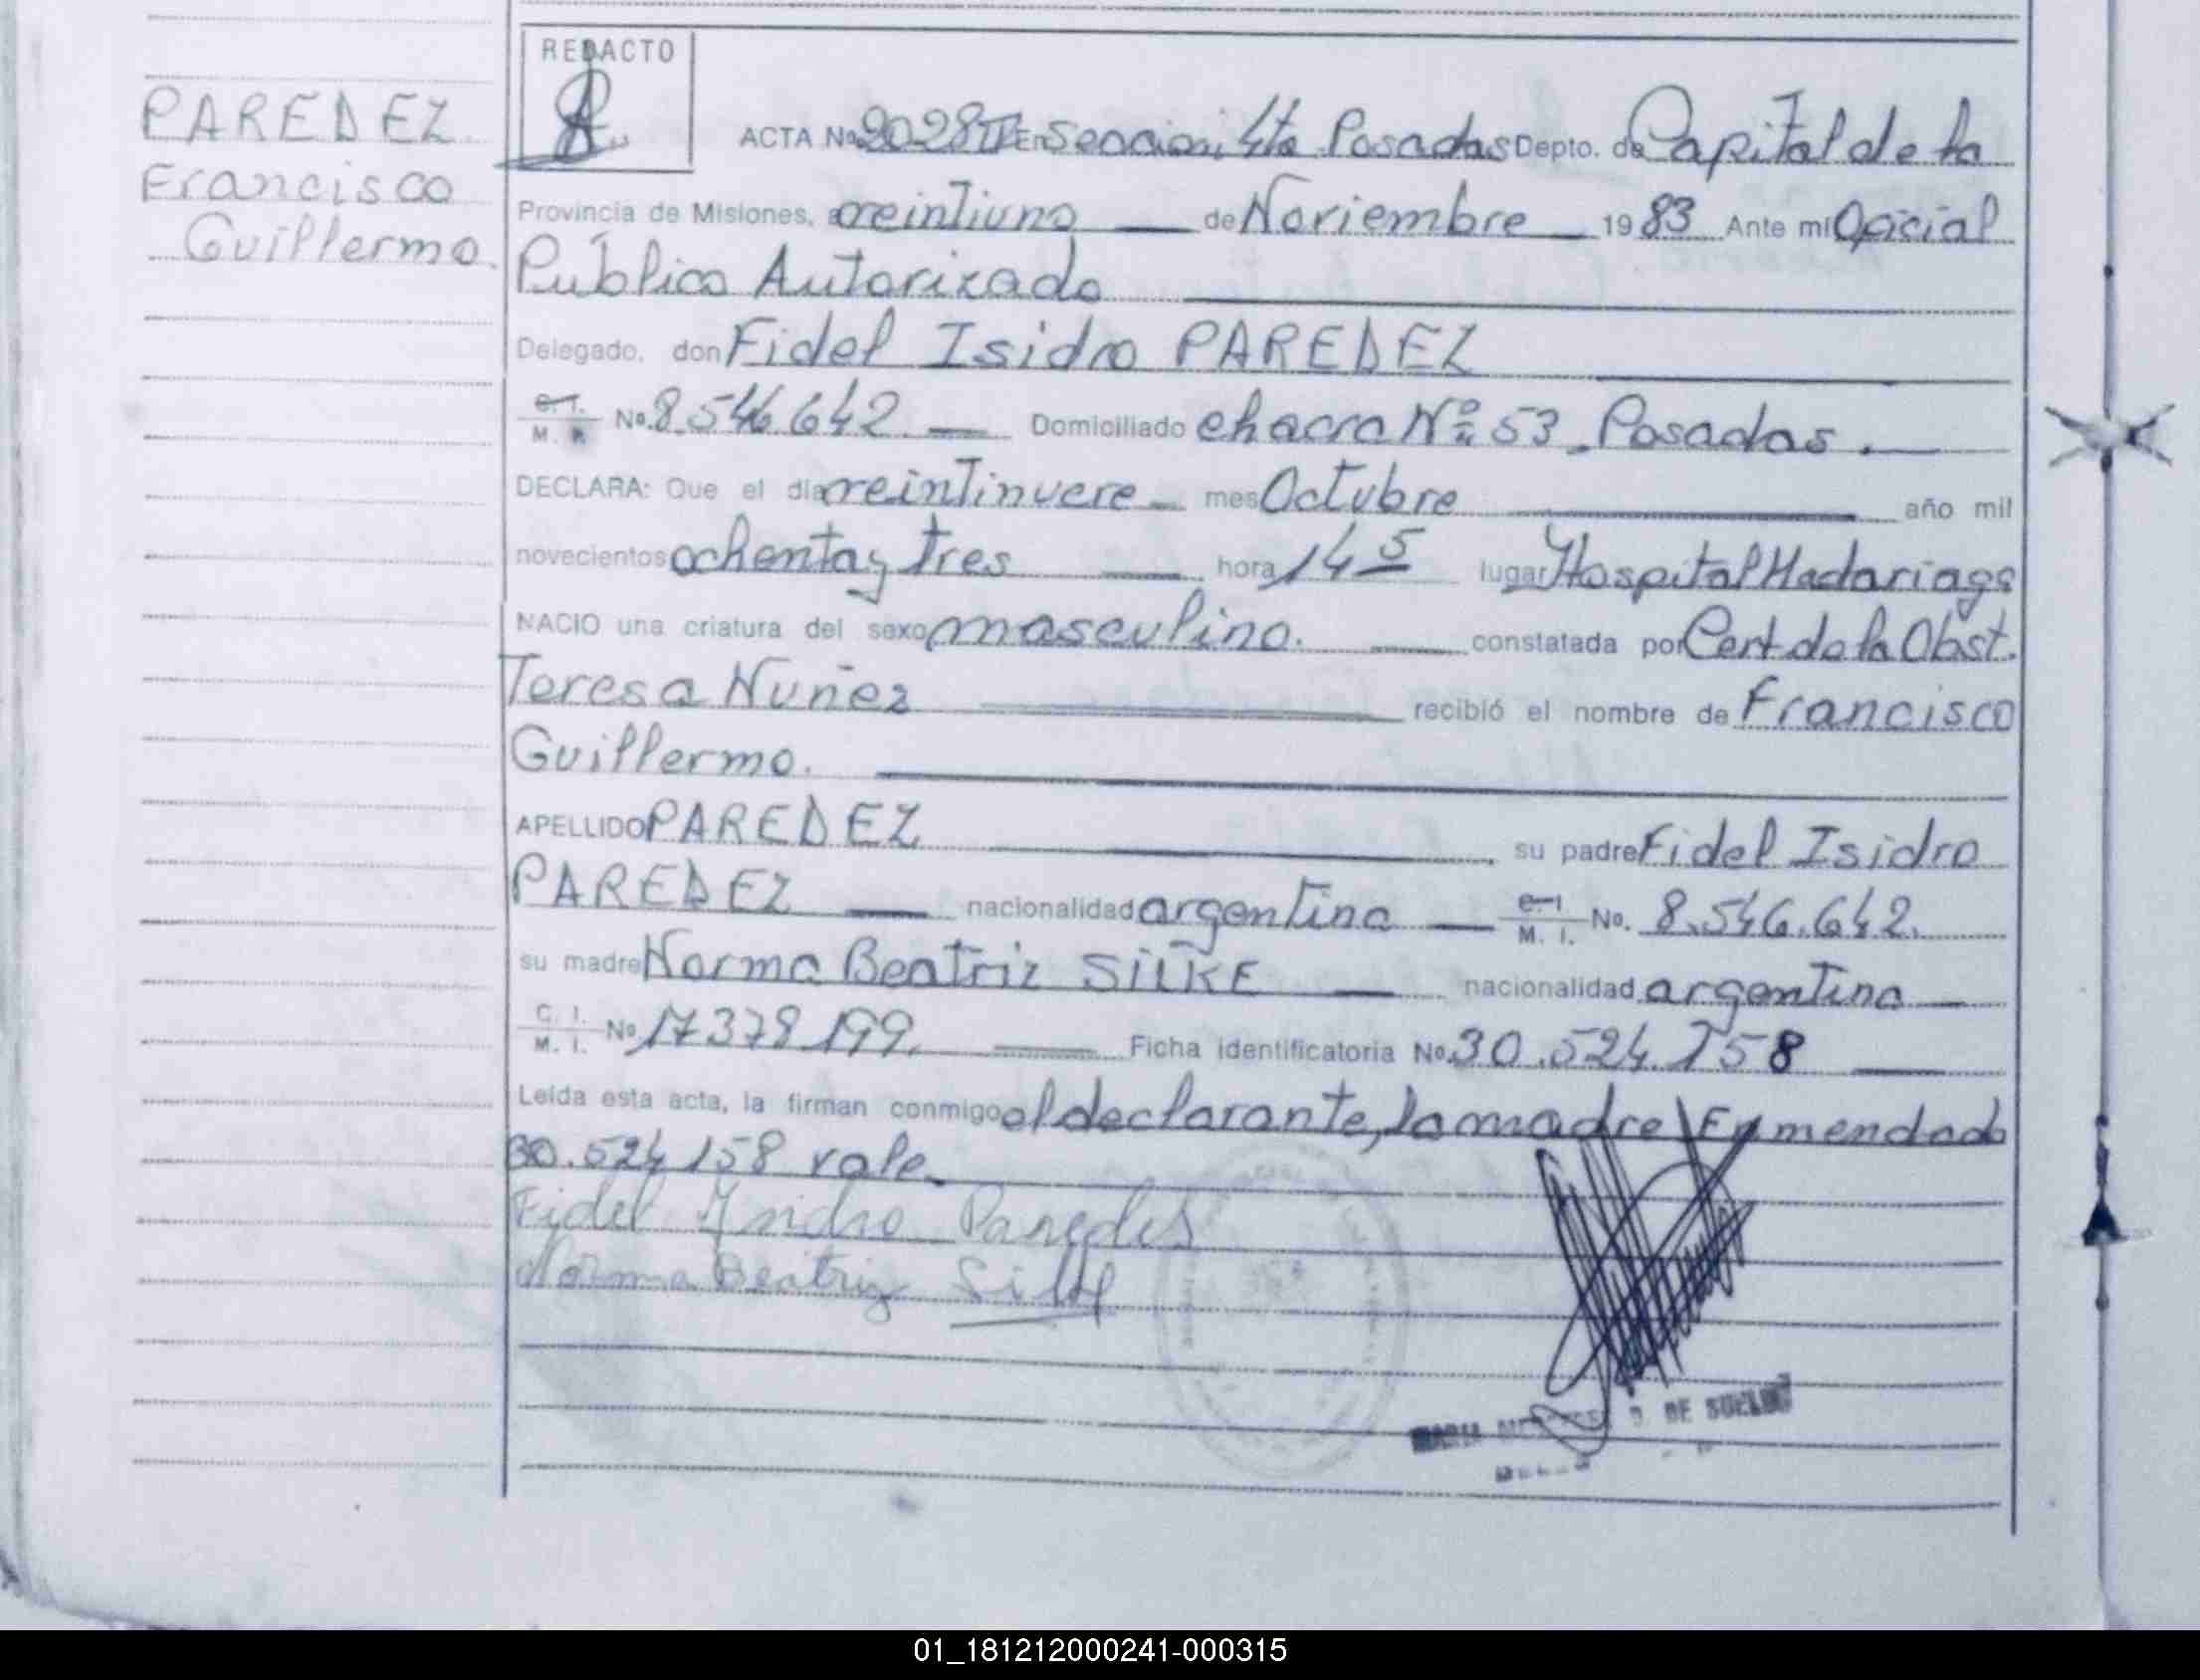 REDACTO
PAREDEZ
Francisco
Guillermo.
ACTA No. 2028 II En Seccion 4ta Posadas Depto. de Capital de la
Provincia de Misiones, a veintiuno de Noviembre 1983 Ante mi Oficial
Público Autorizado
Delegado, don Fidel Isidro PAREDEZ
C. I. M. I. No. 8.546.642. Domiciliado chacra Nº 53, Posadas.
DECLARA: Que el día veintinueve mes Octubre año mil
novecientos ochenta y tres hora 14 5 lugar Hospital Madariaga
NACIO una criatura del sexo masculino. constatada por Cert. de la Obst.
Teresa Nuñez recibió el nombre de Francisco
Guillermo.
APELLIDO PAREDEZ su padre Fidel Isidro
PAREDEZ nacionalidad argentina C. I. M. I. No. 8.546.642.
su madre Norma Beatriz SILKE nacionalidad argentina
C. I. M. I. No. 17378199. Ficha identificatoria No. 30.524.158
Leída esta acta, la firman conmigo el declarante, la madre\Enmendado
30.524.158 vale.
Fidel Isidro Paredes
Norma Beatriz Silke
DE SUELDO
01_181212000241-000315